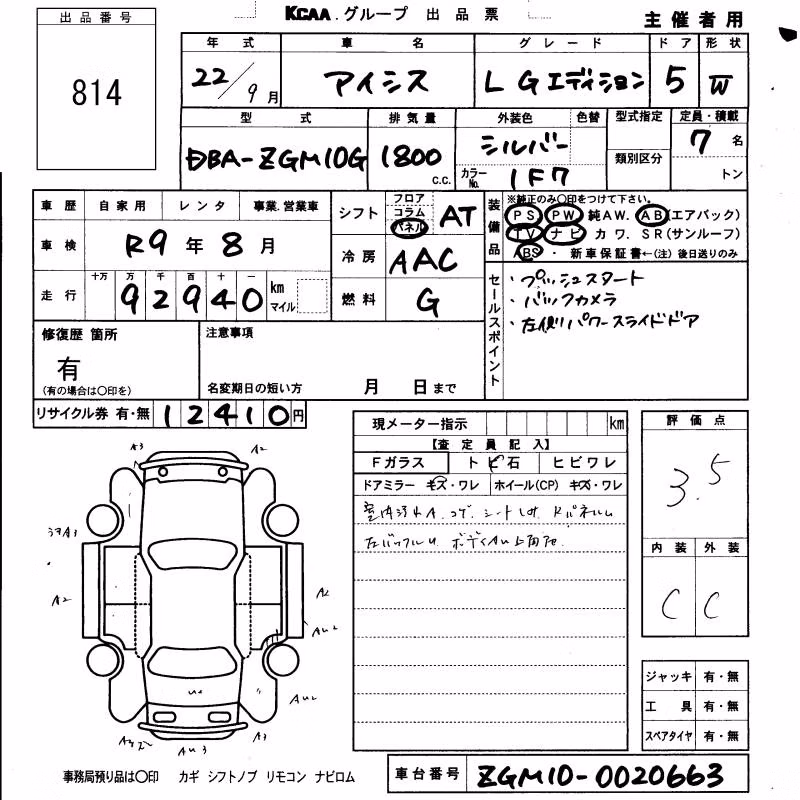 KCAA.グループ 出品票
主催者用
出品番号
814
年式 車名 グレード ドア 形状
22/9月 アイシス L Gエディション 5 W
型式 排気量 外装色 色替 型式指定 定員・積載
DBA-ZGM10G 1800 c.c. シルバー 7名
カラーNo. 1F7 類別区分 トン
車歴 自家用 レンタ 事業.営業車
車検 R9年8月
走行 十万 万 千 百 十 一
92940 km マイル
シフト フロア コラム パネル AT
冷房 AAC
燃料 G
装備品 ※純正のみ○印をつけて下さい。
PS PW 純AW. AB(エアバック)
TV ナビ カワ. SR(サンルーフ)
ABS ・ 新車保証書←(注)後日送りのみ
セールスポイント
・プッシュスタート
・バックカメラ
・左側パワースライドドア
修復歴 箇所
有
(有の場合は○印を)
注意事項
名変期日の短い方 月 日まで
リサイクル券 有・無 12410円
現メーター指示 km
【査定員記入】
Fガラス トビ石 ヒビワレ
ドアミラー キズ・ワレ ホイール(CP) キズ・ワレ
評価点
3.5
内装 外装
C C
A3 A2
A3
A2 A2
AU2
AU2
AU3 A3
ジャッキ 有・無
工具 有・無
スペアタイヤ 有・無
事務局預り品は○印 カギ シフトノブ リモコン ナビロム
車台番号 ZGM10-0020663